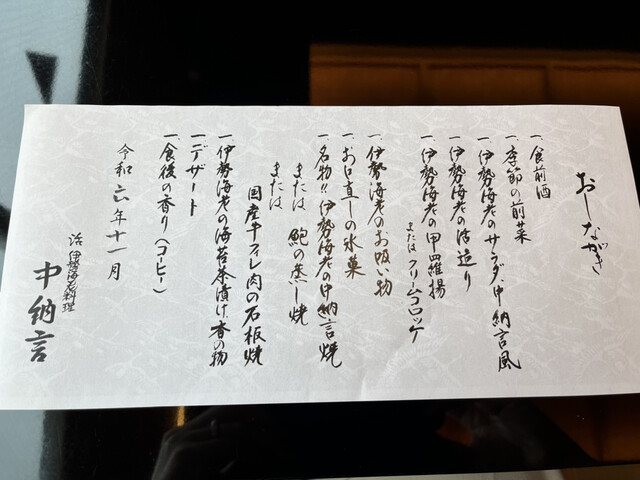 おしながき
一、食前酒
一、季節の前菜
一、伊勢海老のサラダ中納言風
一、伊勢海老の活造り
一、伊勢海老の甲羅揚
またはクリームコロッケ
一、伊勢海老のお吸い物
一、お口直しの氷菓
一、名物!!伊勢海老の中納言焼
または 鮑の蒸し焼
または 国産牛フィレ肉の石板焼
一、伊勢海老の海苔茶漬け、香の物
一、デザート
一、食後の香り(コーヒー)
令和六年十一月
活伊勢海老料理
中納言